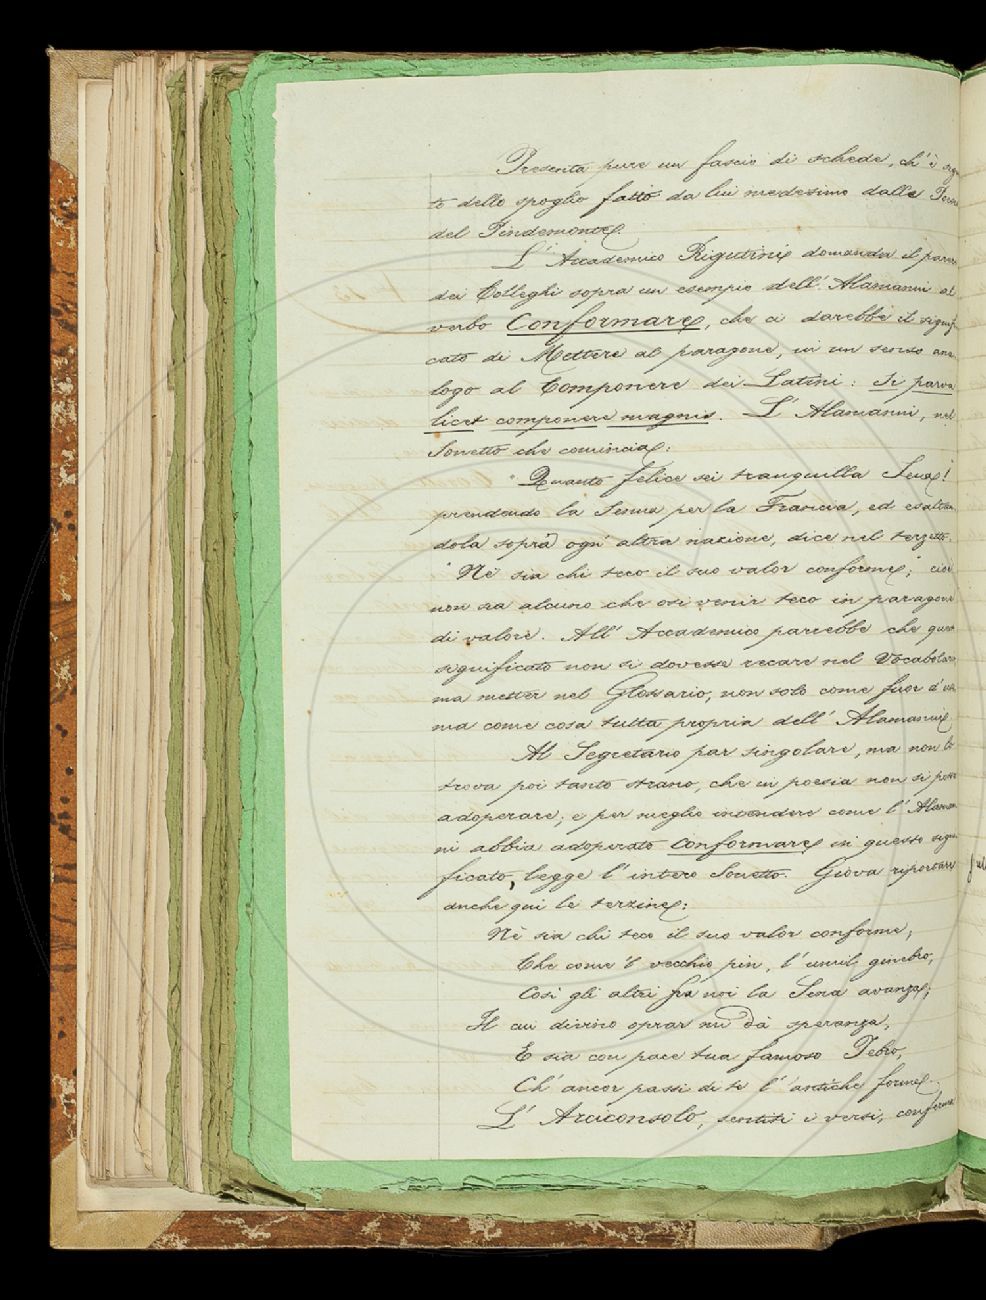 Presenta pure un fascio di schede, ch' è segui
to dello spoglio fatto da lui medesimo dalle
del Pindemonte.
L' Accademico Rigutini domanda il parere
dei Colleghi sopra un esempio dell' Alamanni al
verbo Conformare, che ci darebbe il signifi
cato di Mettere al paragone, in un senso ana
logo al Componere dei Latini: Si parva
licet componere magnis. L' Alamanni, nel
Sonetto che comincia:
"Quanto felice sei tranquilla Sena!
prendendo la Senna per la Francia, ed esaltan
dola sopra ogn' altra nazione, dice nel terzetto:
"Nè sia chi teco il suo valor conforme; cioè
non sia alcuno che osi venir teco in paragone
di valore. All' Accademico parrebbe che questo
significato non si dovesse recare nel Vocabolario,
ma metter nel Glossario, non solo come fuor d' uso
ma come cosa tutta propria dell' Alamanni.
Al Segretario par singolare, ma non lo
trova poi tanto strano, che in poesia non si possa
adoperare; e per meglio intendere come l' Alaman
ni abbia adoperato conformare in questo signi
ficato, legge l' intero Sonetto. Giova riportare
anche qui le terzine:
Nè sia chi teco il suo valor conforme;
Che come 'l vecchio pin, l' umil ginebro,
Così gli altri fra noi la Sena avanza;
Il cui divino oprar mi dà speranza,
E sia con pace tua famoso Tebro,
Ch' ancor passi di te l' antiche forme.
L' Arciconsolo, sentiti i versi, conferma